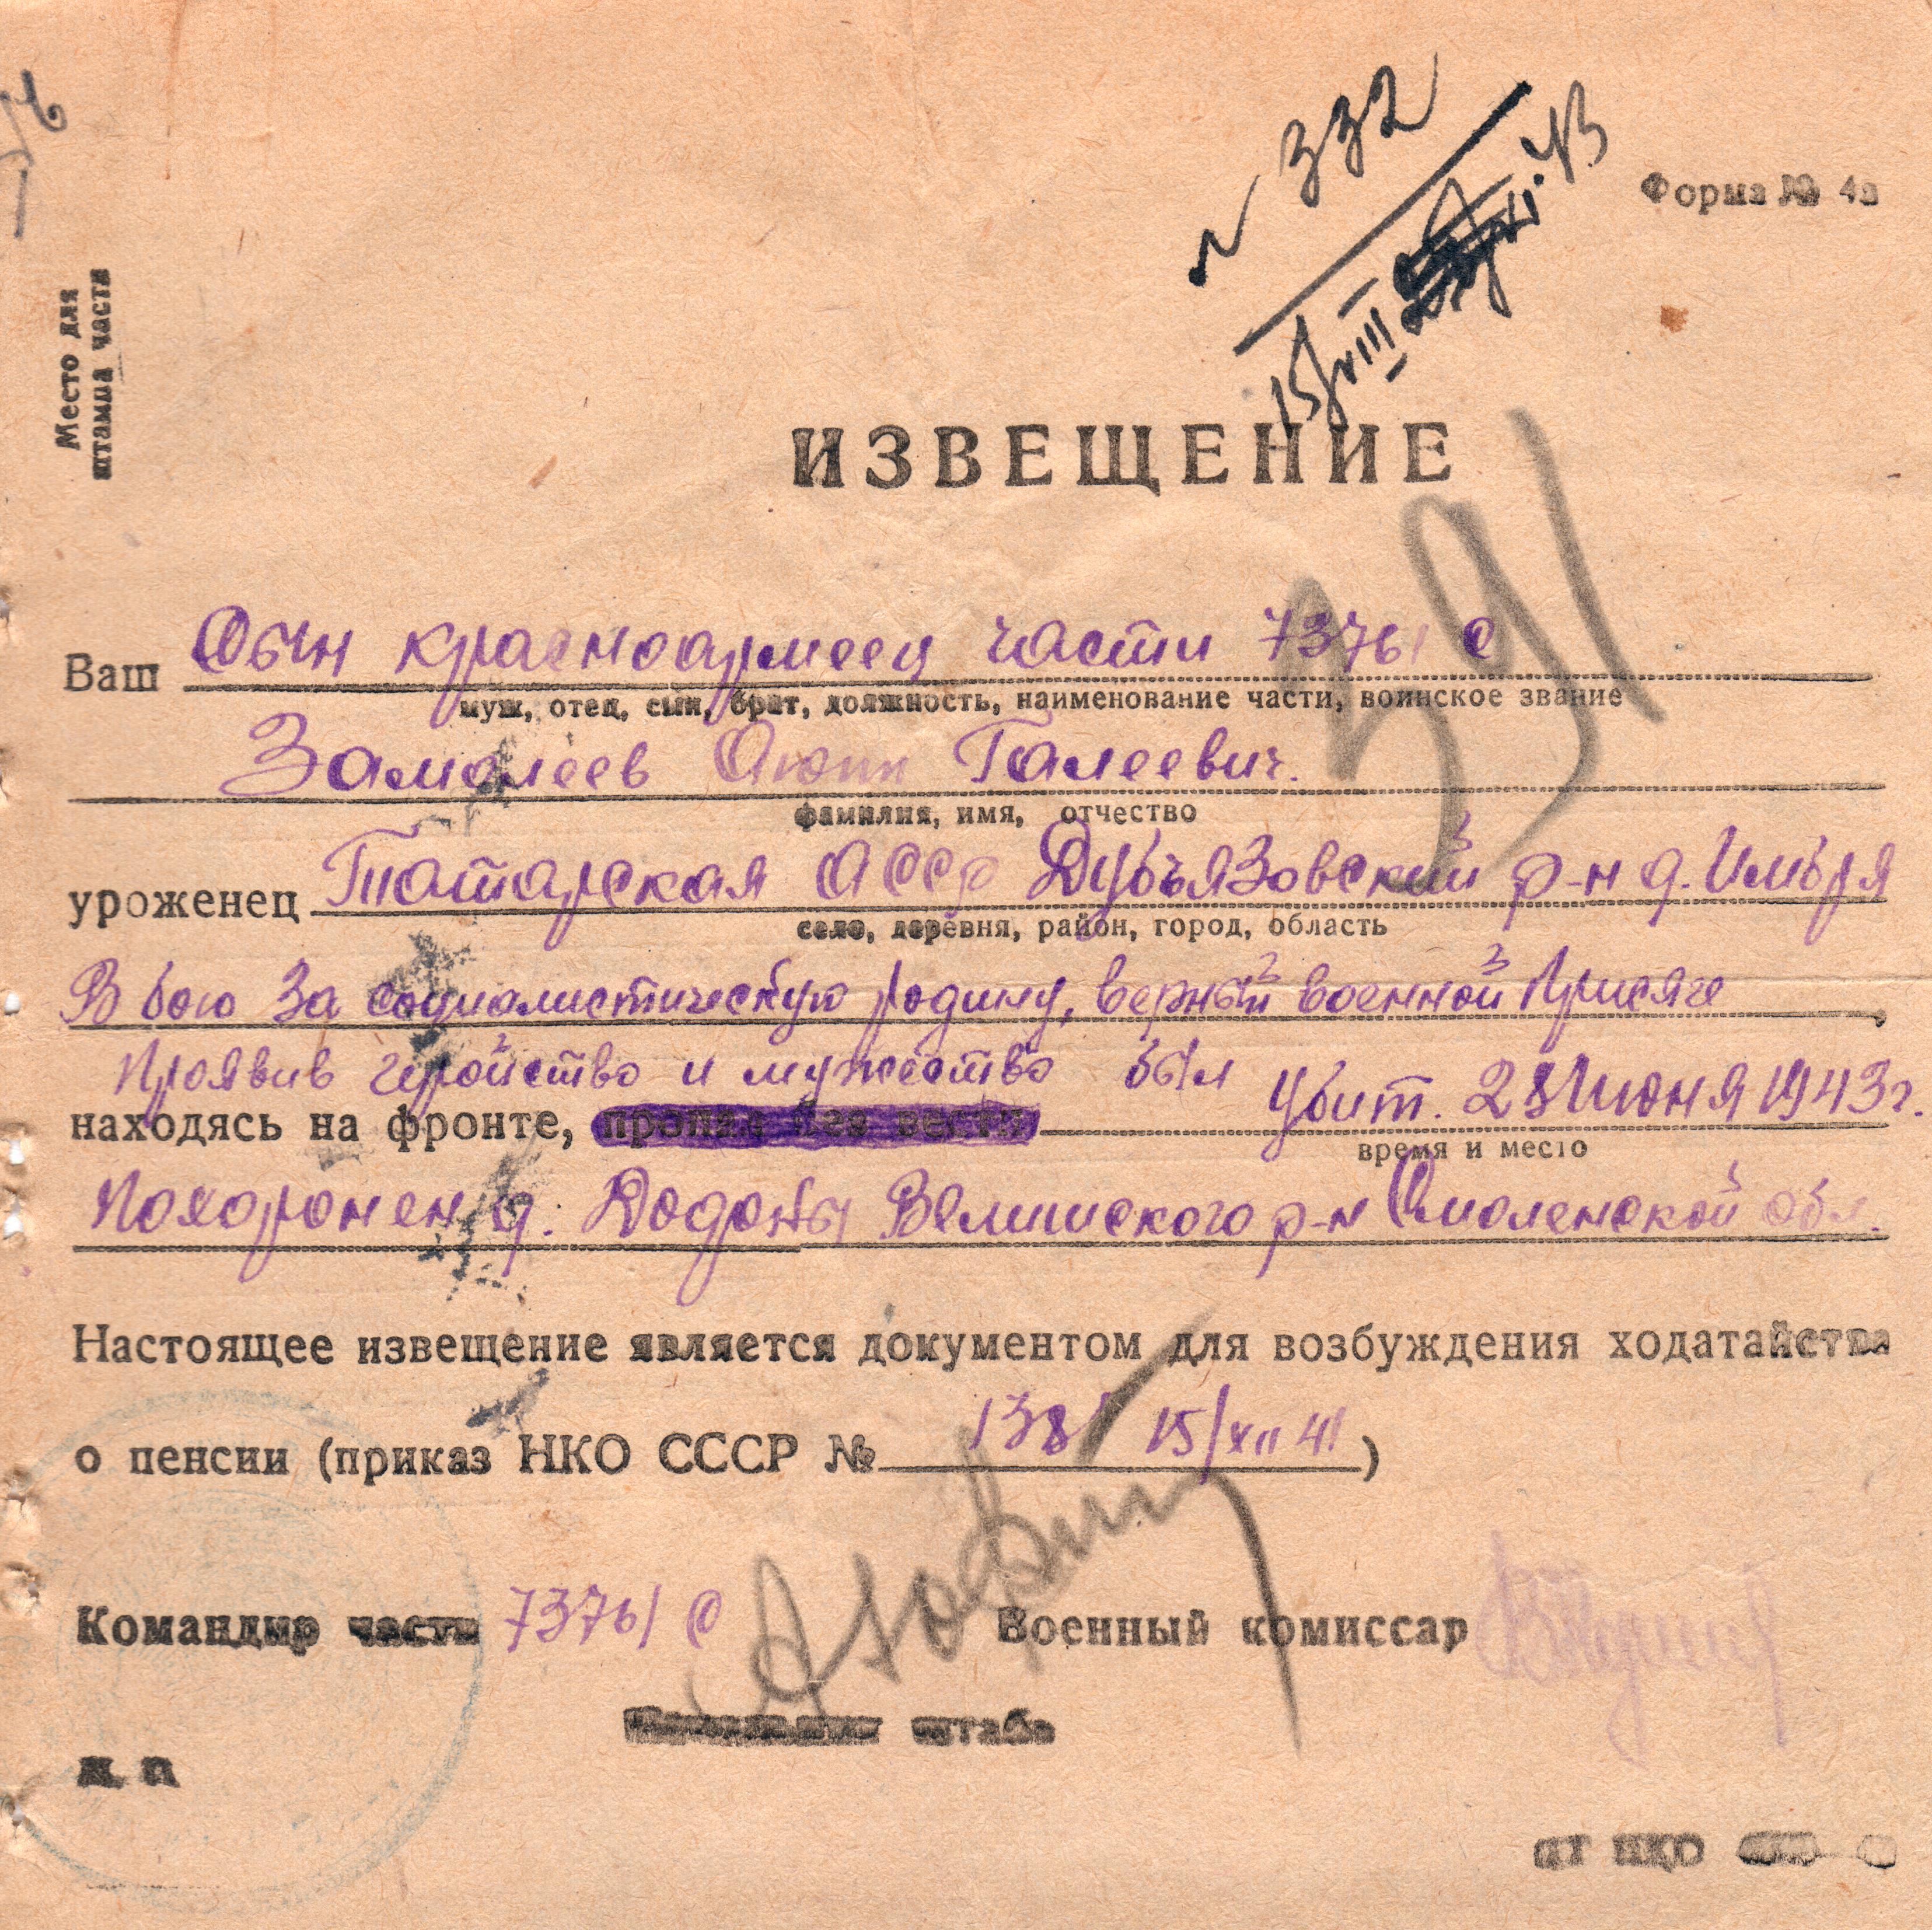 № 332
15/VIII 43
Форма № 4а
Место для
штампа части
ИЗВЕЩЕНИЕ
391
Ваш Сын красноармеец части 73761 С
муж, отец, сын, брат, должность, наименование части, воинское звание
Замалеев Аюп Галеевич.
фамилия, имя, отчество
уроженец Татарская АССР Дубъязовский р-н д.
село, деревня, район, город, область
В бою за социалистическую родину, верный военной присяге
Проявив геройство и мужество был убит. 28 Июня 1943 г.
находясь на фронте, пропал без вести
время и место
Похоронен д. Велижского р-н Смоленской обл.
Настоящее извещение является документом для возбуждения ходатайства
о пенсии (приказ НКО СССР № 138 15/XII 41)
Командир части 73761 С
Военный комиссар
штаба
м. п